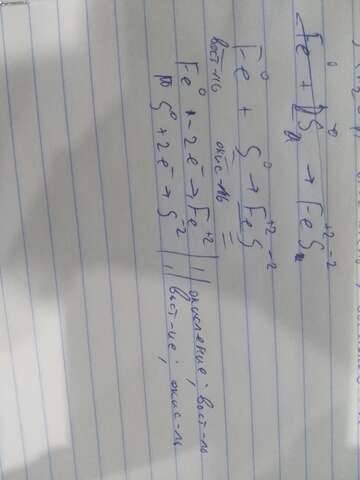 Fe⁰ + S⁰ → Fe⁺²S⁻²
Fe⁰ + S⁰ → Fe⁺²S⁻²
вост-ль окис-ль
Fe⁰ - 2e⁻ → Fe⁺² | 1 | окисление; вост-ль
S⁰ + 2e⁻ → S⁻² | 1 | вост-ие; окис-ль